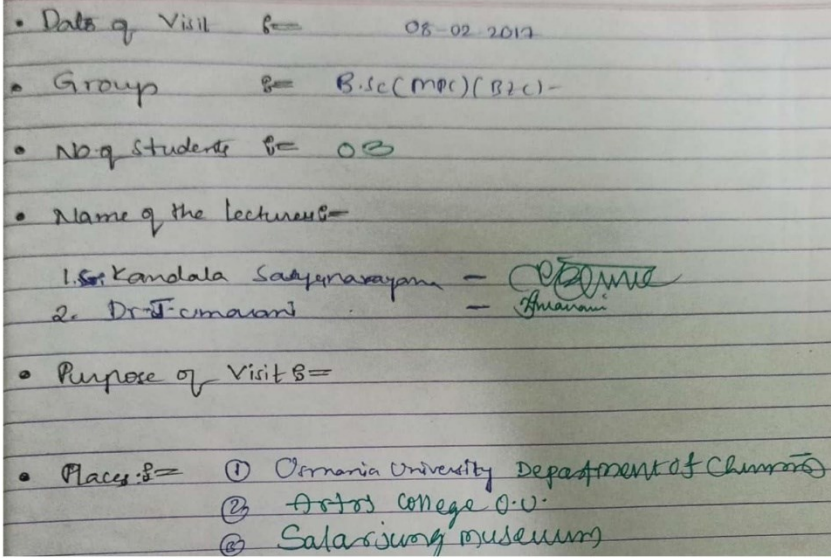 • Date of Visit :-  08-02-2017
• Group :- B.Sc(MPC)(BZC)-
• No.of Students :- 08
• Name of the Lecturers:-
1. Kandala Satyanarayana -
2. Dr. J. Umarani -
• Purpose of Visit :-
• Places :- ① Osmania University Department of
② Arts college O.U.
③ Salarjung Museum